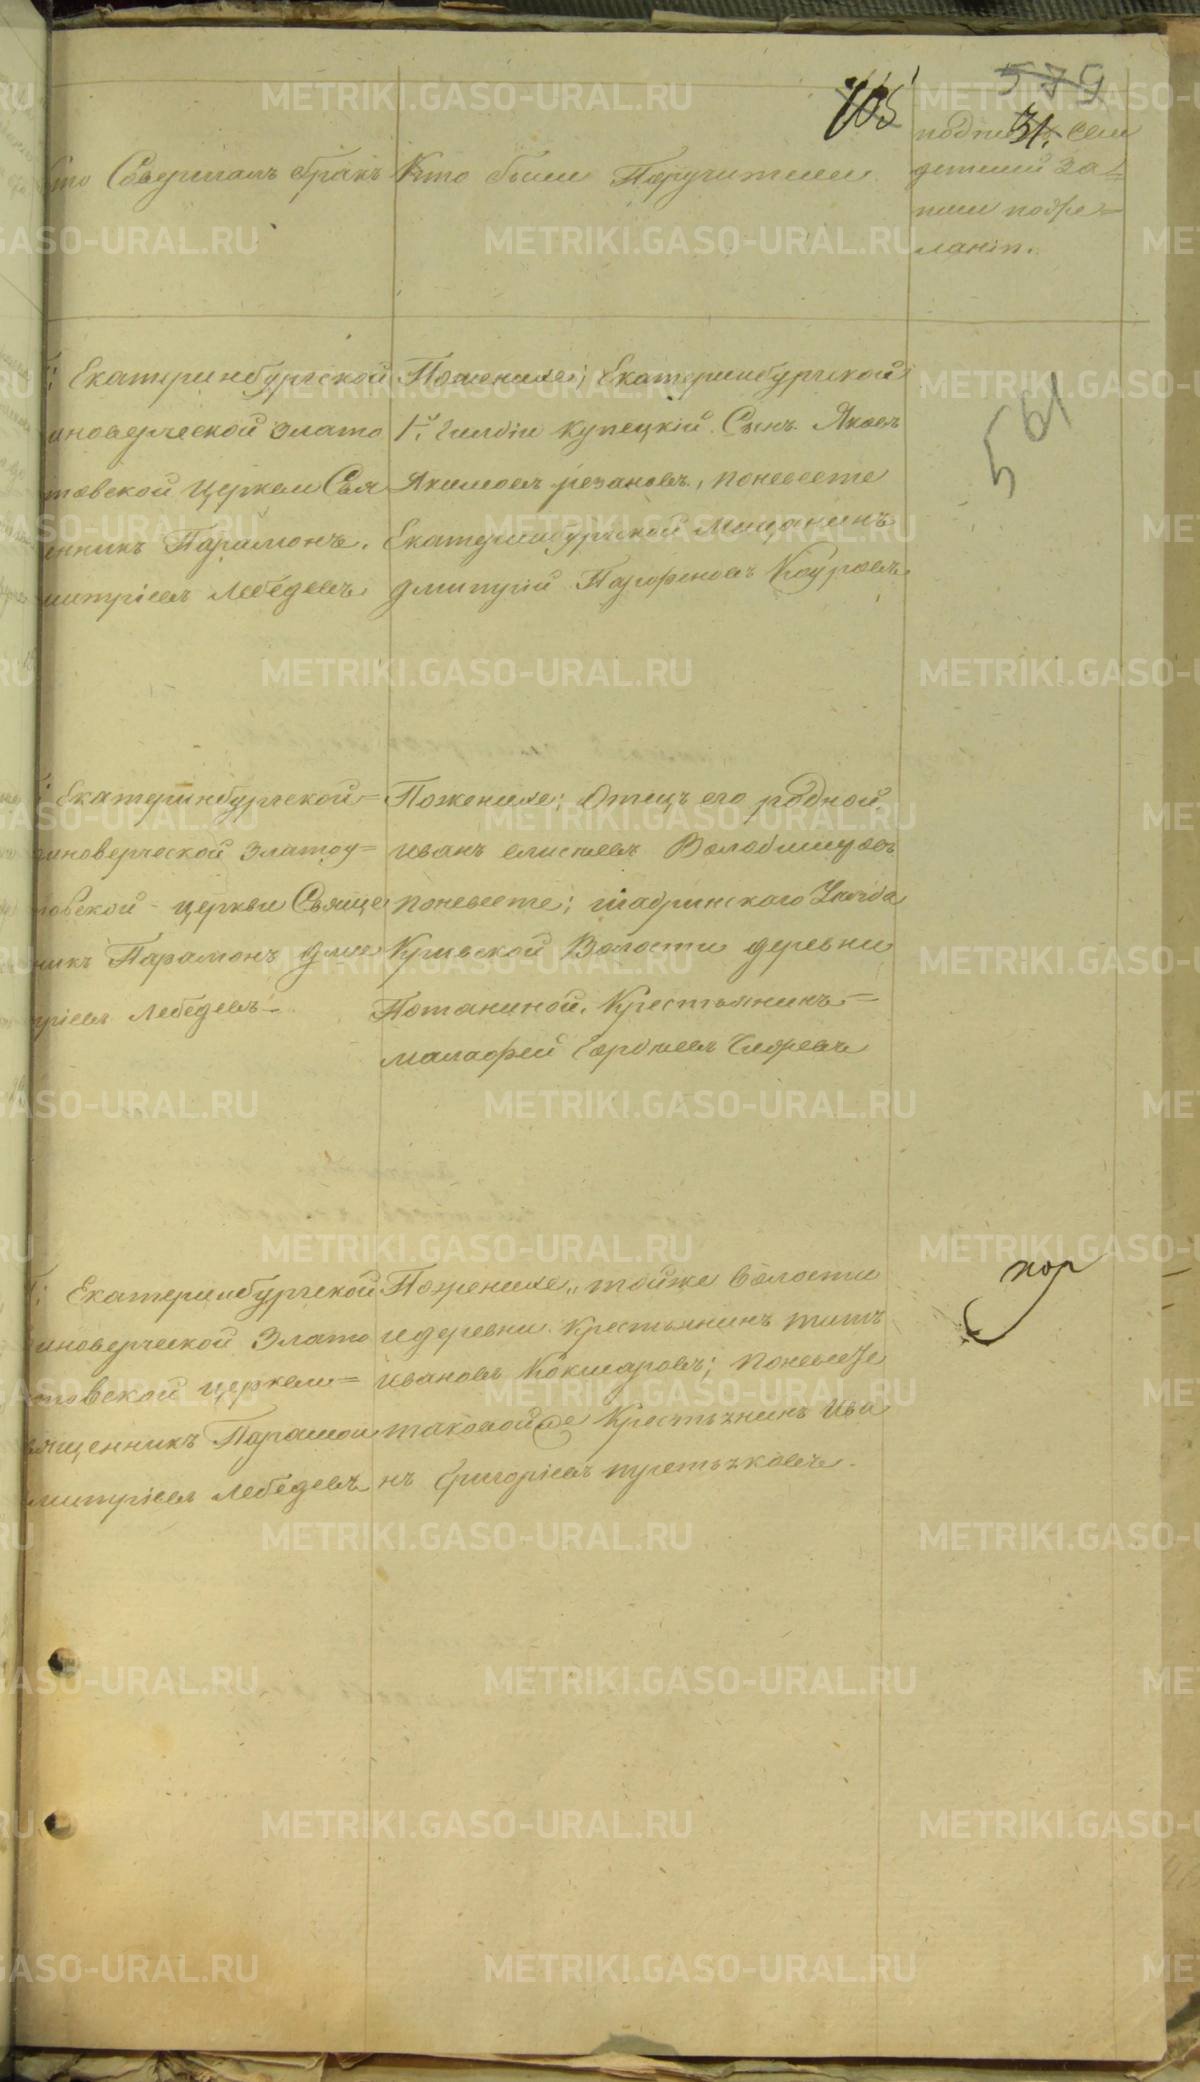 579
705
31.
Кто Совершалъ бракъ
Кто были Поручители
подпись Сви
детелей за
писи поже=
ланію.
Г: Екатеринбургской
иноверческой Злато
товской церкви Свя
енникъ Парамонъ.
митріевъ Лебедевъ
Поженихе; Екатеринбургской
1й. Гилдіи купецкій Сынъ Яковъ
Якимовъ резановъ, поневесте
Екатеринбургской Мещанинъ
дмитрій Парфеновъ Коуровъ
51
Екатеринбургской=
иноверческой Златоу=
товской церкви Свяще
никъ Парамонъ Дми
тріевъ Лебедевъ.
Поженихе; Отецъ его родной
иванъ елисеевъ
поневесте; шадринскаго Уезда
Кривской Волости деревни
Потаниной, Крестьянинъ=
малафей
Г: Екатеринбургской
иноверческой Злато
стовской церкви=
вященникъ Парамон
митріевъ Лебедевъ
Поженихе, тойже Волости
идеревни Крестьянинъ титъ
ивановъ Кокшаровъ; поневесте
таковойже Крестьянинъ Ива
нъ Григоріевъ
кор
METRIKI.GASO-URAL.RU